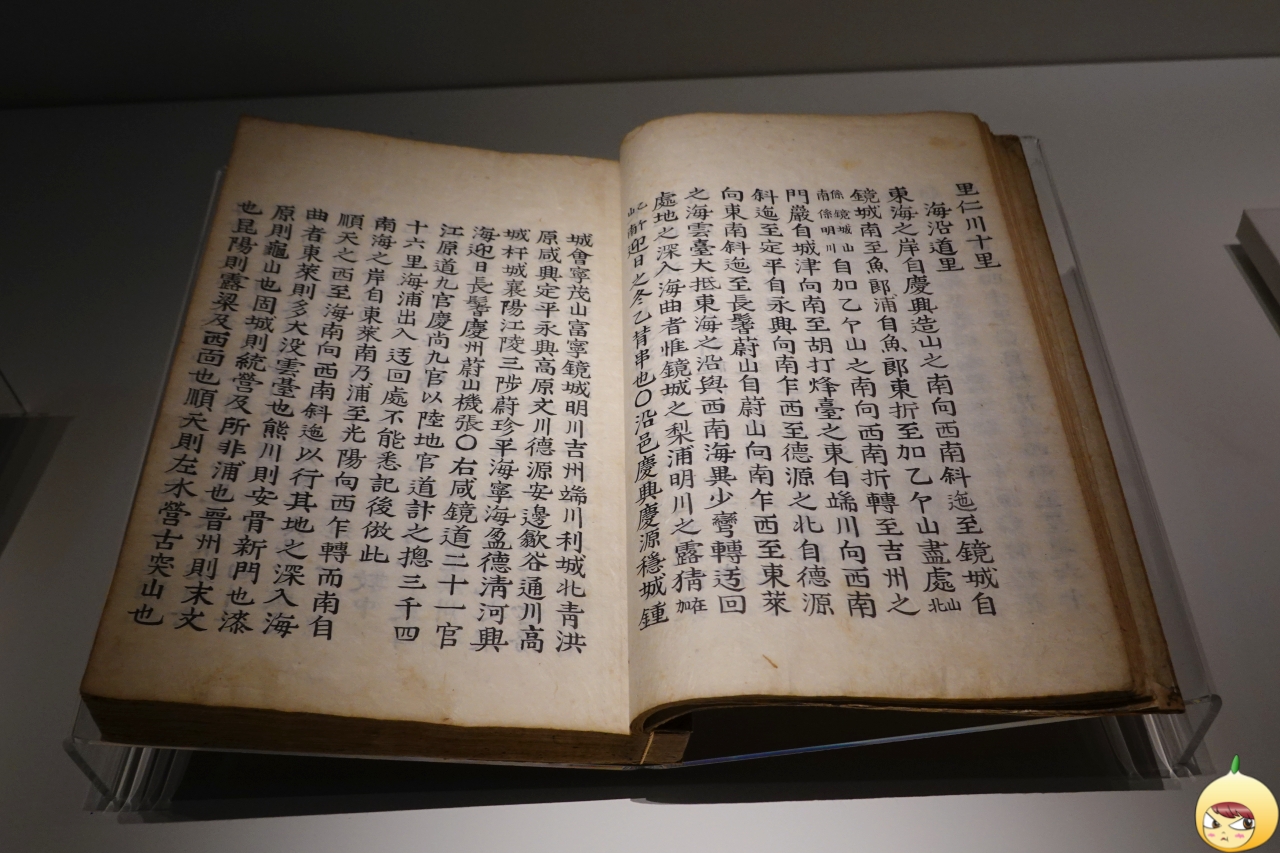 里仁川十里
海沿道里
東海之岸自慶興造山之南向西南斜迤至鏡城自
鏡城南至魚郞浦自魚郞東折至加乙亇山盡處山北
係鏡城山南係明川自加乙亇山之南向西南折轉至吉州之
門嚴自城津向南至胡打烽臺之東自端川向西南
斜迤至定平自永興向南乍西至德源之北自德源
向東南斜迤至長鬐蔚山自蔚山向南乍西至東萊
之海雲臺大抵東海之沿與西南海異少彎轉迃回
處地之深入海曲者惟鏡城之梨浦明川之露猜在加
乙亇山南迎日之冬乙背串也〇沿邑慶興慶源穩城鍾
城會寧茂山富寧鏡城明川吉州端川利城北青洪
原咸興定平永興高原文川德源安邊歙谷通川高
城杆城襄陽江陵三陟蔚珍平海寧海盈德淸河興
海迎日長鬐慶州蔚山機張〇右咸鏡道二十一官
江原道九官慶尙九官以陸地官道計之摠三千四
十六里海浦出入迃回處不能悉記後倣此
南海之岸自東萊南乃浦至光陽向西乍轉而南自
順天之西至海南向西南斜迤以行其地之深入海
曲者東萊則多大没雲臺也熊川則安骨新門也漆
原則龜山也固城則統營及所非浦也晋州則末文
也昆陽則露梁及西面也順天則左水營古突山也